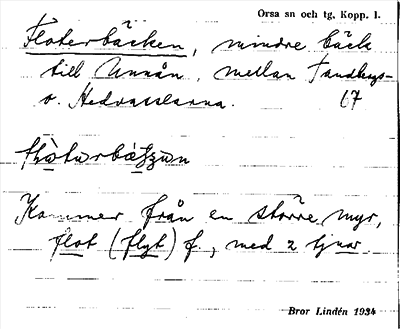 Orsa sn och tg, Kopp. l.
Floterbäcken, mindre bäck
till Unnån, mellan Tandbergs-
o. Hedvasslarna. 67
Kommer från en större myr,
flot (flyt) f., med 2 tjnar.
Bror Lindén 1934